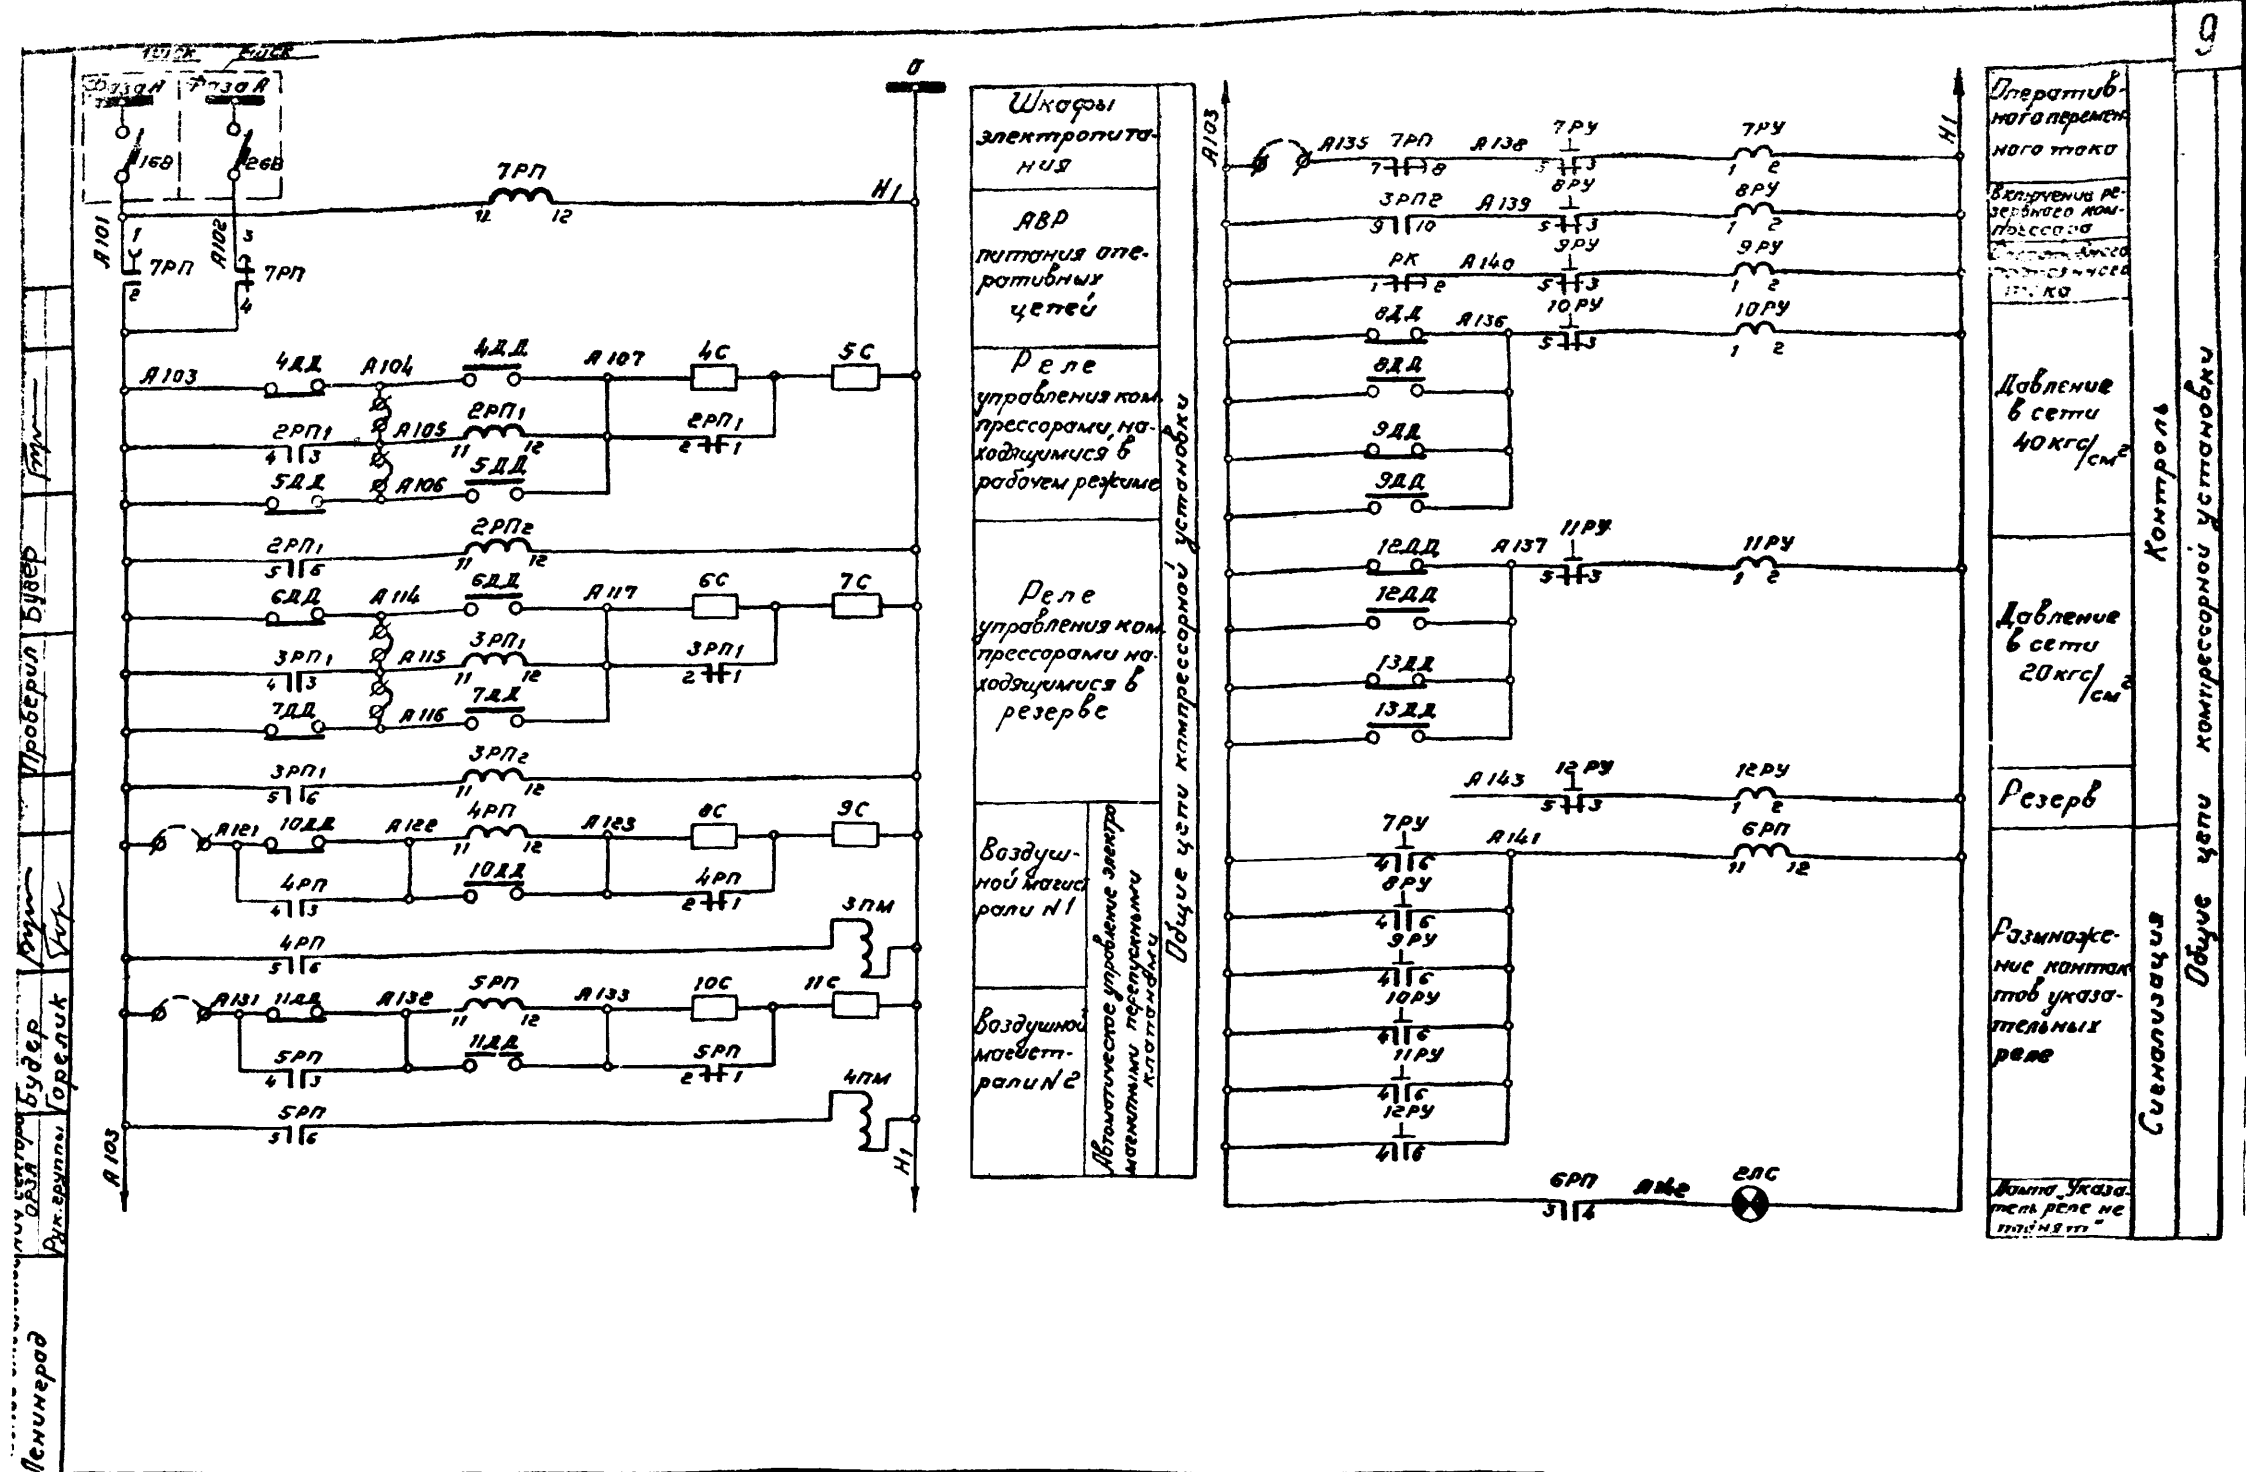 9
Фаза А
Фаза А
1бВ
2бВ
0
7РП
11
12
Н1
А101
А102
1
7РП
2
3
7РП
4
А103
4ДД
А104
4ДД
А107
4С
5С
2РП1
4
3
А105
2РП1
11
12
2РП1
2
1
5ДД
А106
5ДД
2РП1
5
6
2РП2
11
12
6ДД
А114
6ДД
А117
6С
7С
3РП1
4
3
А115
3РП1
11
12
3РП1
2
1
7ДД
А116
7ДД
3РП1
5
6
3РП2
11
12
А121
10ДД
А122
4РП
11
12
А123
8С
9С
4РП
4
3
10ДД
4РП
2
1
4РП
5
6
3ПМ
А131
11ДД
А132
5РП
11
12
А133
10С
11С
5РП
4
3
11ДД
5РП
2
1
5РП
5
6
4ПМ
А103
Н1
Шкафы
электропита-
ния
АВР
питания опе-
ративных
цепей
Реле
управления ком-
прессорами, на-
ходящимися в
рабочем режиме
Реле
управления ком-
прессорами на-
ходящимися в
резерве
Воздуш-
ной магист
рали N1
Воздушной
магист-
рали N2
Автоматическое управление электро
магнитными перепускными
клапанами
Общие цепи компрессорной установки
А103
Н1
А135
7РП
7
8
А138
7РУ
5
3
7РУ
1
2
3РП2
9
10
А139
8РУ
5
3
8РУ
1
2
РК
1
2
А140
9РУ
5
3
9РУ
1
2
8ДД
А136
10РУ
5
3
10РУ
1
2
8ДД
9ДД
9ДД
12ДД
А137
11РУ
5
3
11РУ
1
2
12ДД
13ДД
13ДД
А143
12РУ
5
3
12РУ
1
2
7РУ
4
6
А141
6РП
11
12
8РУ
4
6
9РУ
4
6
10РУ
4
6
11РУ
4
6
12РУ
4
6
6РП
3
4
А142
2ЛС
Оператив-
ного перемен
ного тока
Включения ре-
зервного ком-
прессора
тока
Давление
в сети
40кгс/см2
Давление
в сети
20кгс/см2
Резерв
Размноже-
ние контак
тов указа-
тельных
реле
Лампа „Указа
тель реле не
поднят"
Контроль
Сигнализация
Общие цепи компрессорной установки
Проверил
Будер
Будер
Горелик
ОРЗА
Рук. группы
Ленинград